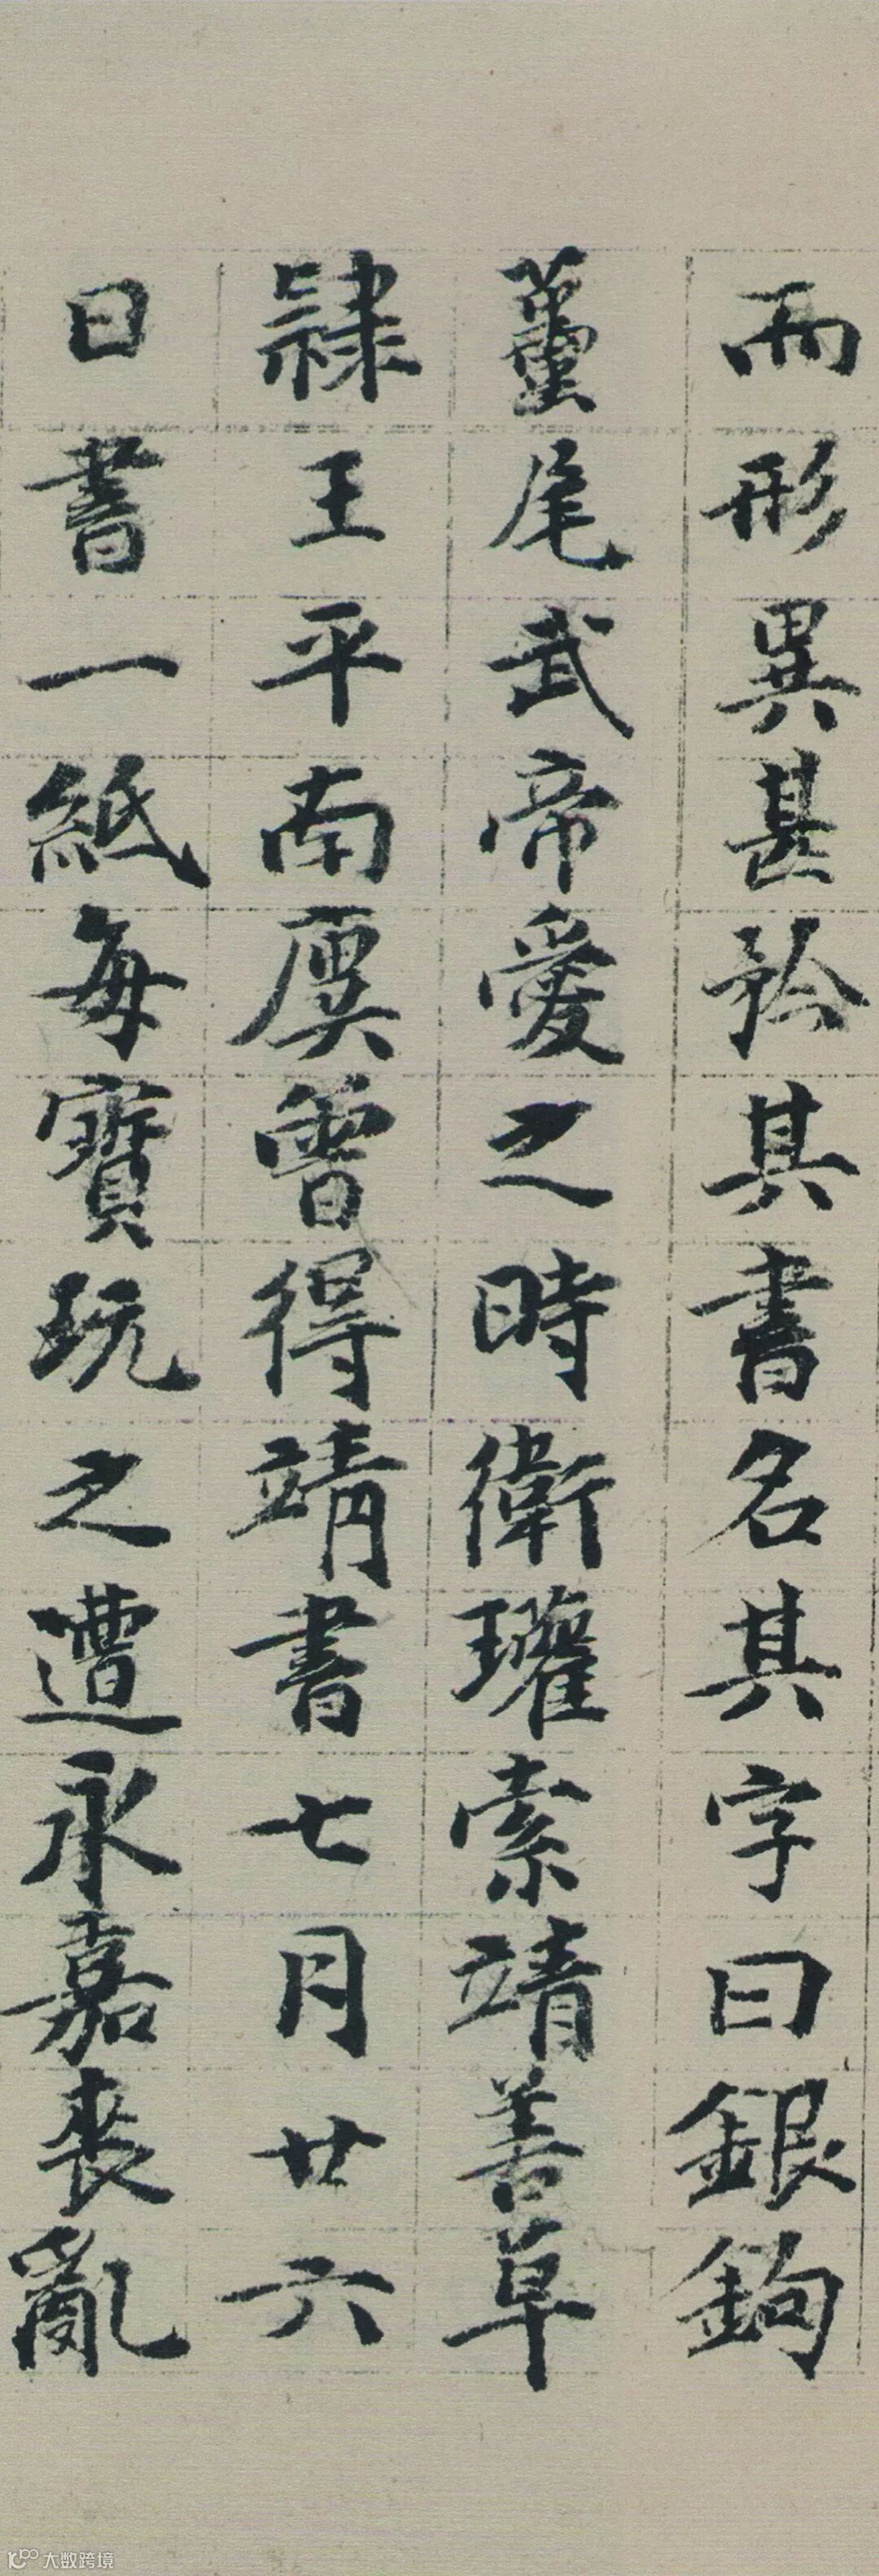 而形異甚矜其書名其字曰銀鉤
蠆尾武帝愛之時衛瓘索靖善草
隸王平南廙曾得靖書七月廿六
日書一紙每寶玩之遭永嘉喪亂
大数跨境